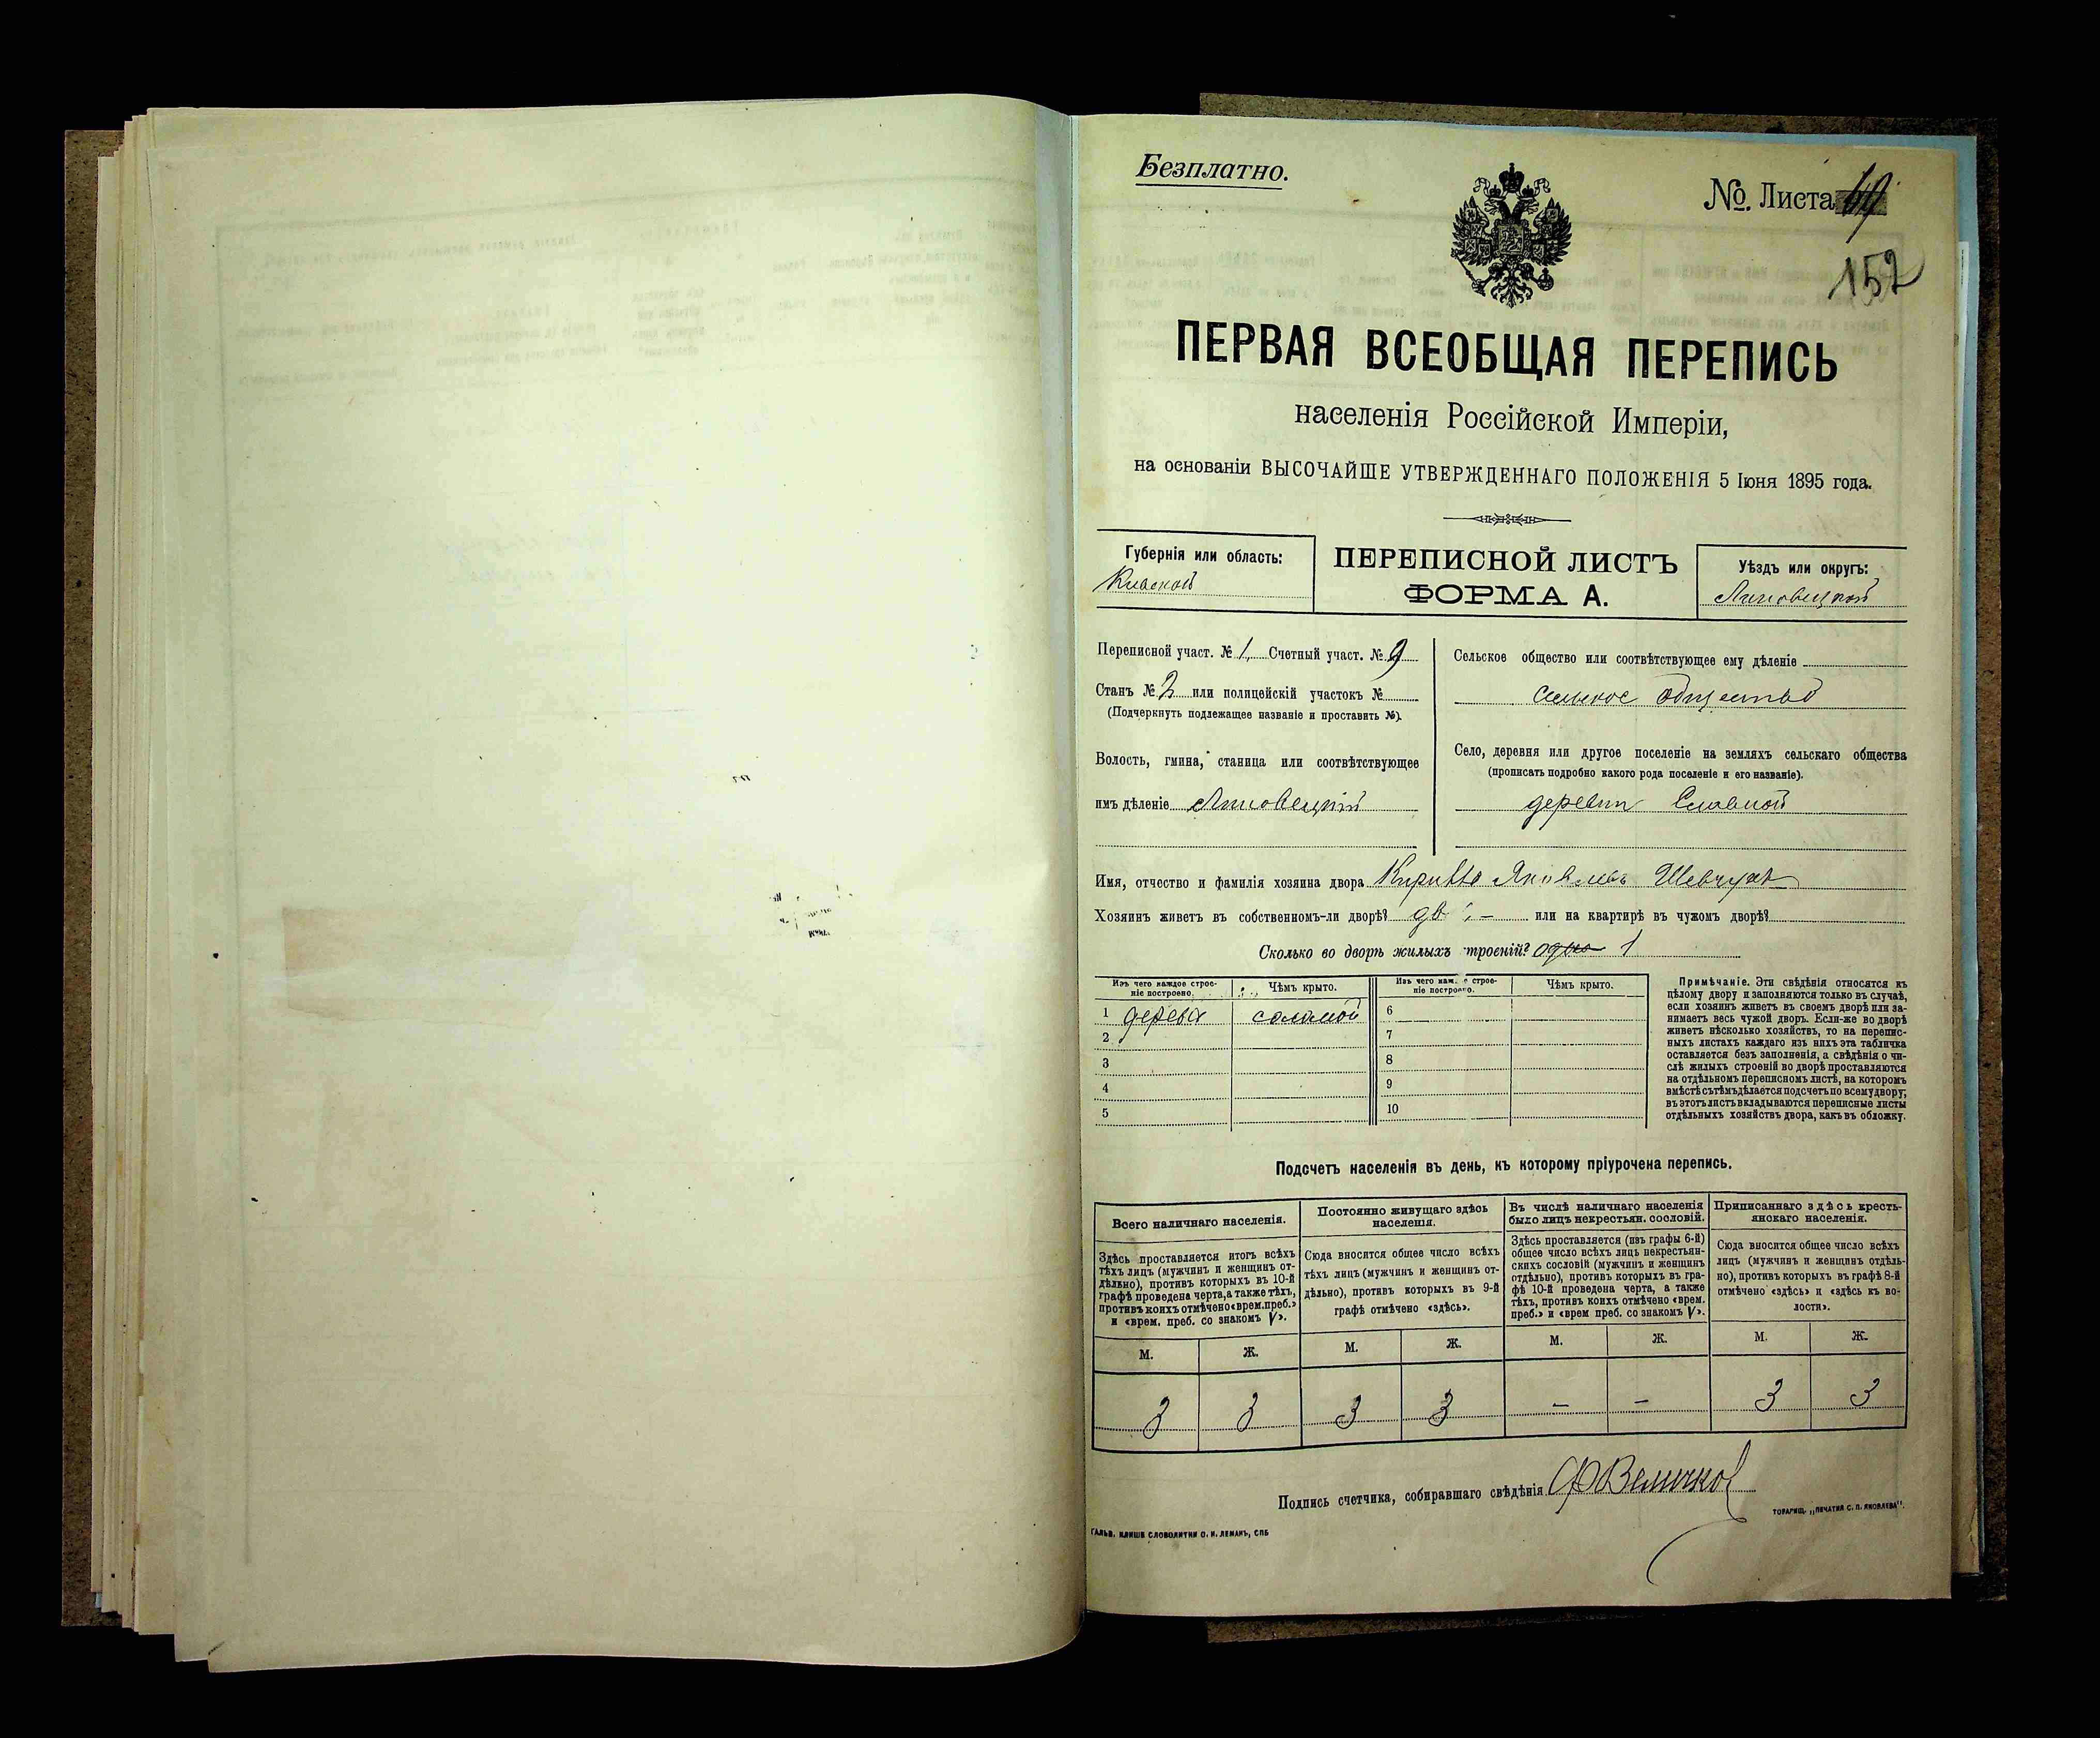 Безплатно.
№. Листа 69
152
ПЕРВАЯ ВСЕОБЩАЯ ПЕРЕПИСЬ
населенія Россійской Имперіи,
на основаніи ВЫСОЧАЙШЕ УТВЕРЖДЕННАГО ПОЛОЖЕНІЯ 5 Іюня 1895 года.
Губернія или область:
Кіевской
ПЕРЕПИСНОЙ ЛИСТЪ
ФОРМА А.
Уѣздъ или округъ:
Липовецкой
Переписной участ. № 1 Счетный участ. № 9
Станъ № 2 или полицейскій участокъ №
(Подчеркнуть подлежащее названіе и проставить №).
Волость, гмина, станица или соотвѣтствующее
имъ дѣленіе Липовецкій
Сельское общество или соотвѣтствующее ему дѣленіе
Село, деревня или другое поселеніе на земляхъ сельскаго общества
(прописать подробно какого рода поселеніе и его названіе).
Имя, отчество и фамилія хозяина двора Кирилло Яковлевъ Шевчукъ
Хозяинъ живетъ въ собственномъ-ли дворѣ? или на квартирѣ въ чужомъ дворѣ?
Сколько во дворѣ жилыхъ строеній? одно 1
Изъ чего каждое строе-
ніе построено.
Чѣмъ крыто.
Изъ чего кажд. строе-
ніе построено.
Чѣмъ крыто.
1 соломой 6
2 7
3 8
4 9
5 10
Примѣчаніе. Эти свѣдѣнія относятся къ
цѣлому двору и заполняются только въ случаѣ,
если хозяинъ живетъ въ своемъ дворѣ или за-
нимаетъ весь чужой дворъ. Если-же во дворѣ
живетъ нѣсколько хозяйствъ, то на перепис-
ныхъ листахъ каждаго изъ нихъ эта табличка
оставляется безъ заполненія, а свѣдѣнія о чи-
слѣ жилыхъ строеній во дворѣ проставляются
на отдѣльномъ переписномъ листѣ, на которомъ
вмѣстѣ съ тѣмъ дѣлается подсчетъ по всему двору;
въ этотъ листъ вкладываются переписные листы
отдѣльныхъ хозяйствъ двора, какъ въ обложку.
Подсчетъ населенія въ день, къ которому пріурочена перепись.
Всего наличнаго населенія.
Здѣсь проставляется итогъ всѣхъ
тѣхъ лицъ (мужчинъ и женщинъ от-
дѣльно), противъ которыхъ въ 10-й
графѣ проведена черта, а также тѣхъ,
противъ коихъ отмѣчено «врем. преб.»
и «врем. преб. со знакомъ V».
Постоянно живущаго здѣсь
населенія.
Сюда вносится общее число всѣхъ
тѣхъ лицъ (мужчинъ и женщинъ от-
дѣльно), противъ которыхъ въ 9-й
графѣ отмѣчено «здѣсь».
Въ числѣ наличнаго населенія
было лицъ некрестьян. сословій.
Здѣсь проставляется (изъ графы 6-й)
общее число всѣхъ лицъ некрестьян-
скихъ сословій (мужчинъ и женщинъ
отдѣльно), противъ которыхъ въ гра-
фѣ 10-й проведена черта, а также
тѣхъ, противъ коихъ отмѣчено «врем.
преб.» и «врем преб. со знакомъ V».
Приписаннаго здѣсь кресть-
янскаго населенія.
Сюда вносится общее число всѣхъ
лицъ (мужчинъ и женщинъ отдѣль-
но), противъ которыхъ въ графѣ 8-й
отмѣчено «здѣсь» и «здѣсь къ во-
лости».
М. Ж. М. Ж. М. Ж. М. Ж.
3 3 3 3 – – 3 3
Подпись счетчика, собиравшаго свѣдѣнія
ГАЛЬВ. КЛИШЕ СЛОВОЛИТНИ О. И. ЛЕМАНЪ, СПБ
ТОВАРИЩ. „ПЕЧАТНЯ С. П. ЯКОВЛЕВА".